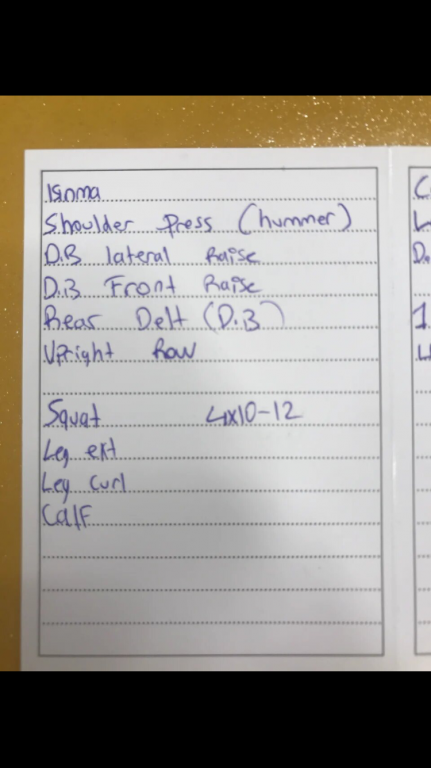 Isınma
Shoulder Press (hummer)
D.B lateral Raise
D.B Front Raise
Rear Delt (D.B)
Upright Row
Squat 4x10-12
Leg ext
Leg curl
Calf
C
L
D.
1
L